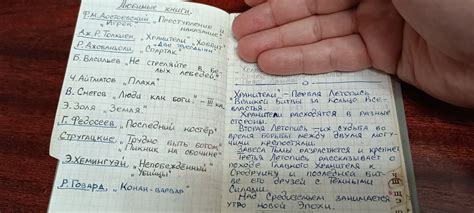 Любимые книги.
Ф.М. Достоевский „Преступление и
наказание"
„Игрок"
Дж. Р. Толкиен, „Хранители" „Хоббит"
„Две твердыни"
Р. Джованьоли „Спартак"
Б. Васильев „Не стреляйте в бе-
лых лебедей"
Ч. Айтматов „Плаха"
В. Снегов „Люди как боги"
Э. Золя „Земля."
Г. Федосеев „Последний костёр"
Стругацкие, „Трудно быть богом"
„Пикник на обочине"
Э. Хемингуэй, „Непобеждённый"
„Убийцы"
Р. Говард, „Конан-варвар"
„Хранители" - Первая Летопись
Великой Битвы за Кольцо Все-
властья.
Хранители расходятся в разные
стороны.
Вторая Летопись - их судьба во
время борьбы между двумя могу-
чими крепостями.
Завеса Тьмы разрастется и крепнет
Третья Летопись рассказывает о
походе Главного Хранителя к
Ородруину и последней бит-
ве его друзей с Тёмными
Силами.
Над Средиземьем занимается
утро новой Эпохи.